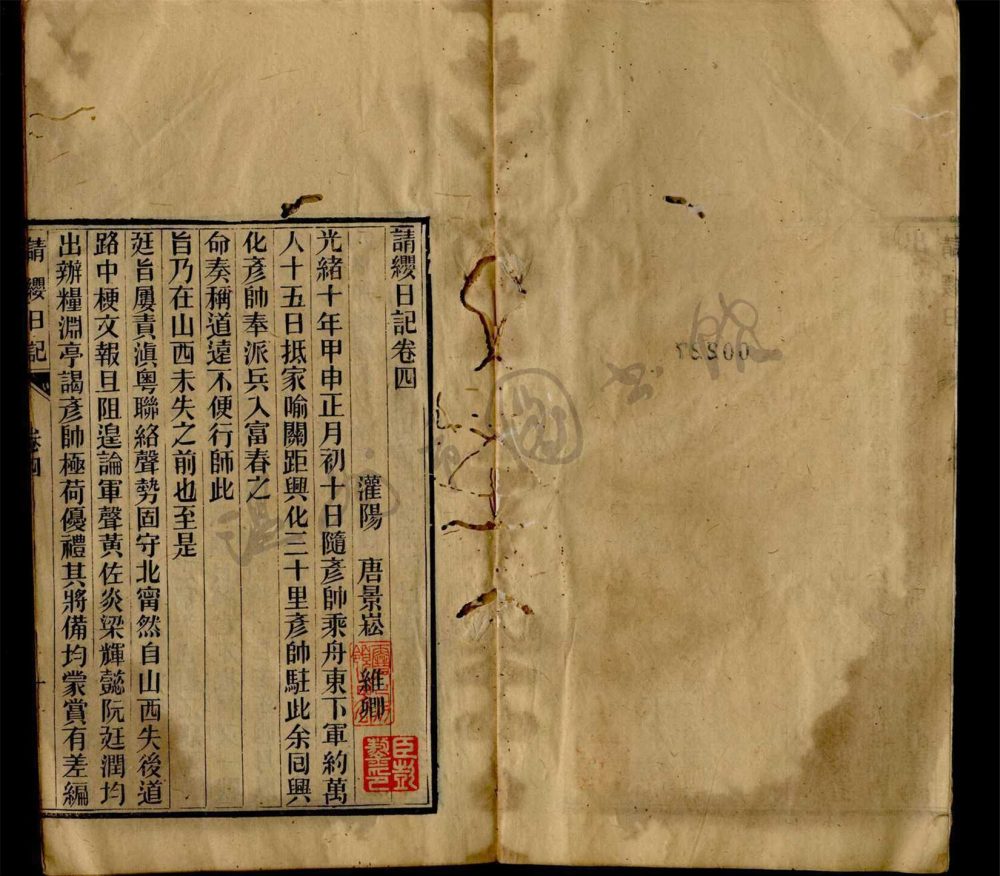 請纓日記卷四
灌陽 唐景崧 維卿
光緒十年甲申正月初十日隨彥帥乘舟東下軍約萬
人十五日抵家喻關距興化三十里彥帥駐此余囘興
化彥帥奉派兵入富春之
命奏稱道遠不便行師此
旨乃在山西未失之前也至是
廷旨屢責滇粵聯絡聲勢固守北甯然自山西失後道
路中梗文報且阻遑論軍聲黃佐炎梁輝懿阮廷潤均
出辦糧淵亭謁彥帥極荷優禮其將備均蒙賞有差編
請纓日記 卷四
00237